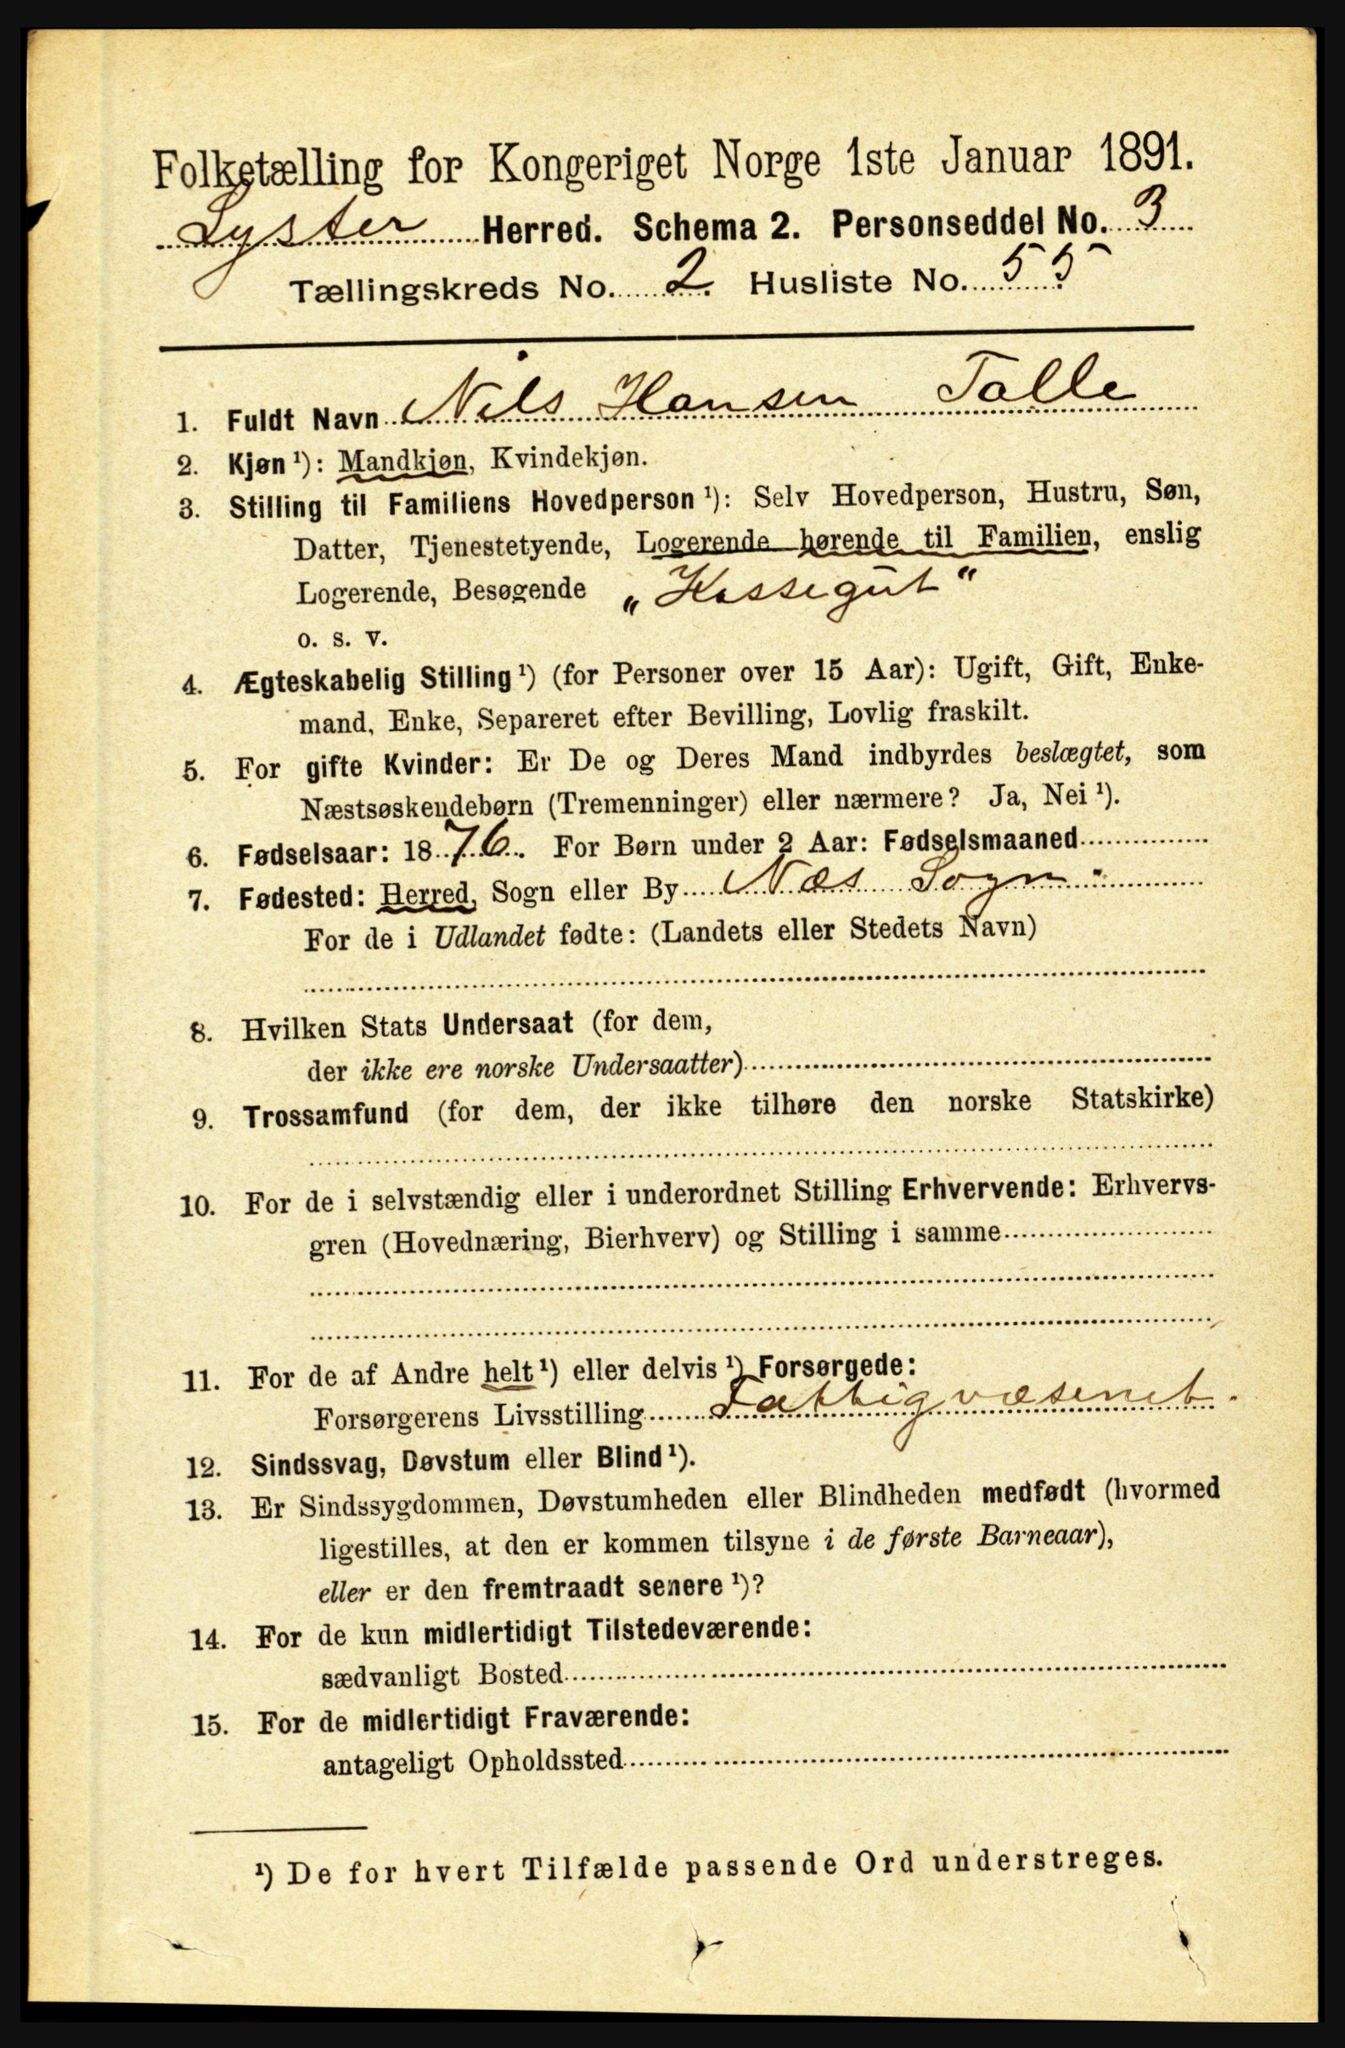 Folketælling for Kongeriget Norge 1ste Januar 1891.
Lyster Herred. Schema 2. Personseddel No. 3
Tællingskreds No. 2. Husliste No. 55
1. Fuldt Navn Nils Hansen Talle
2. Kjøn¹): Mandkjøn, Kvindekjøn.
3. Stilling til Familiens Hovedperson¹): Selv Hovedperson, Hustru, Søn,
Datter, Tjenestetyende, Logerende hørende til Familien, enslig
Logerende, Besøgende „Kassegut“
o. s. v.
4. Ægteskabelig Stilling¹) (for Personer over 15 Aar): Ugift, Gift, Enke-
mand, Enke, Separeret efter Bevilling, Lovlig fraskilt.
5. For gifte Kvinder: Er De og Deres Mand indbyrdes beslægtet, som
Næstsøskendebørn (Tremenninger) eller nærmere? Ja, Nei¹).
6. Fødselsaar: 1876. For Børn under 2 Aar: Fødselsmaaned
7. Fødested: Herred, Sogn eller By Næs Sogn.
For de i Udlandet fødte: (Landets eller Stedets Navn)
8. Hvilken Stats Undersaat (for dem,
der ikke ere norske Undersaatter)
9. Trossamfund (for dem, der ikke tilhøre den norske Statskirke)
10. For de i selvstændig eller i underordnet Stilling Erhvervende: Erhvervs-
gren (Hovednæring, Bierhverv) og Stilling i samme
11. For de af Andre helt¹) eller delvis¹) Forsørgede:
Forsørgerens Livsstilling Fattigvæsenet.
12. Sindssvag, Døvstum eller Blind¹).
13. Er Sindssygdommen, Døvstumheden eller Blindheden medfødt (hvormed
ligestilles, at den er kommen tilsyne i de første Barneaar),
eller er den fremtraadt senere¹)?
14. For de kun midlertidigt Tilstedeværende:
sædvanligt Bosted
15. For de midlertidigt Fraværende:
antageligt Opholdssted
¹) De for hvert Tilfælde passende Ord understreges.